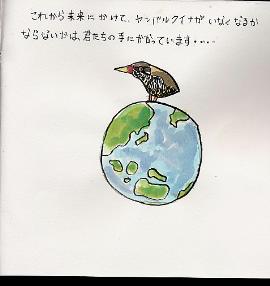 これから未来にかけて、ヤンバルクイナが いなくなるか
ならないかは、君たちの手にかかっています・・・・